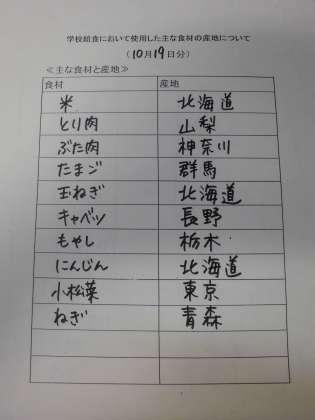 学校給食において使用した主な食材の産地について
(10月19日分)
≪主な食材と産地≫
食材 産地
米 北海道
とり肉 山梨
ぶた肉 神奈川
たまご 群馬
玉ねぎ 北海道
キャベツ 長野
もやし 栃木
にんじん 北海道
小松菜 東京
ねぎ 青森